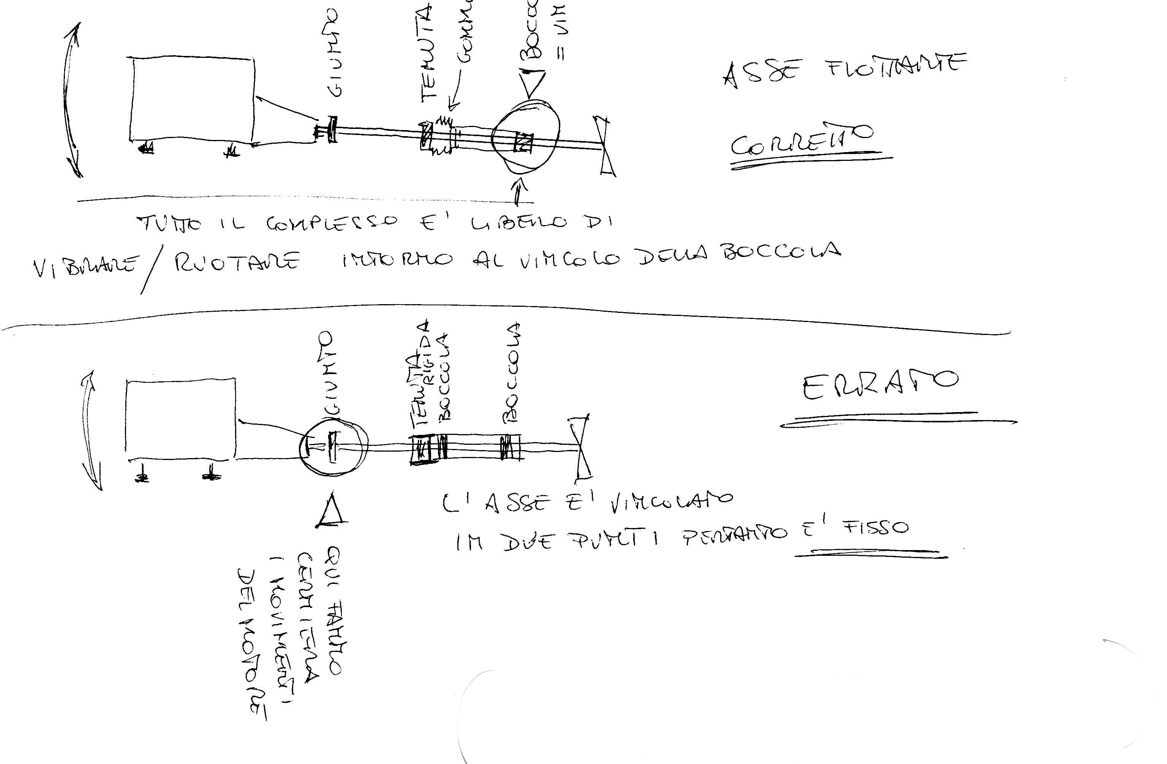 GIUNTO
TENUTA
GOMM
BOCCO
= VIN
ASSE FLOTTANTE
CORRETTO
TUTTO IL COMPLESSO E' LIBERO DI
VIBRARE/RUOTARE INTORNO AL VINCOLO DELLA BOCCOLA
GIUNTO
TENUTA
RIGIDA
BOCCOLA
BOCCOLA
ERRATO
L'ASSE E' VINCOLATO
IN DUE PUNTI PERTANTO E' FISSO
QUI FANNO
CERNIERA
I MOVIMENTI
DEL MOTORE